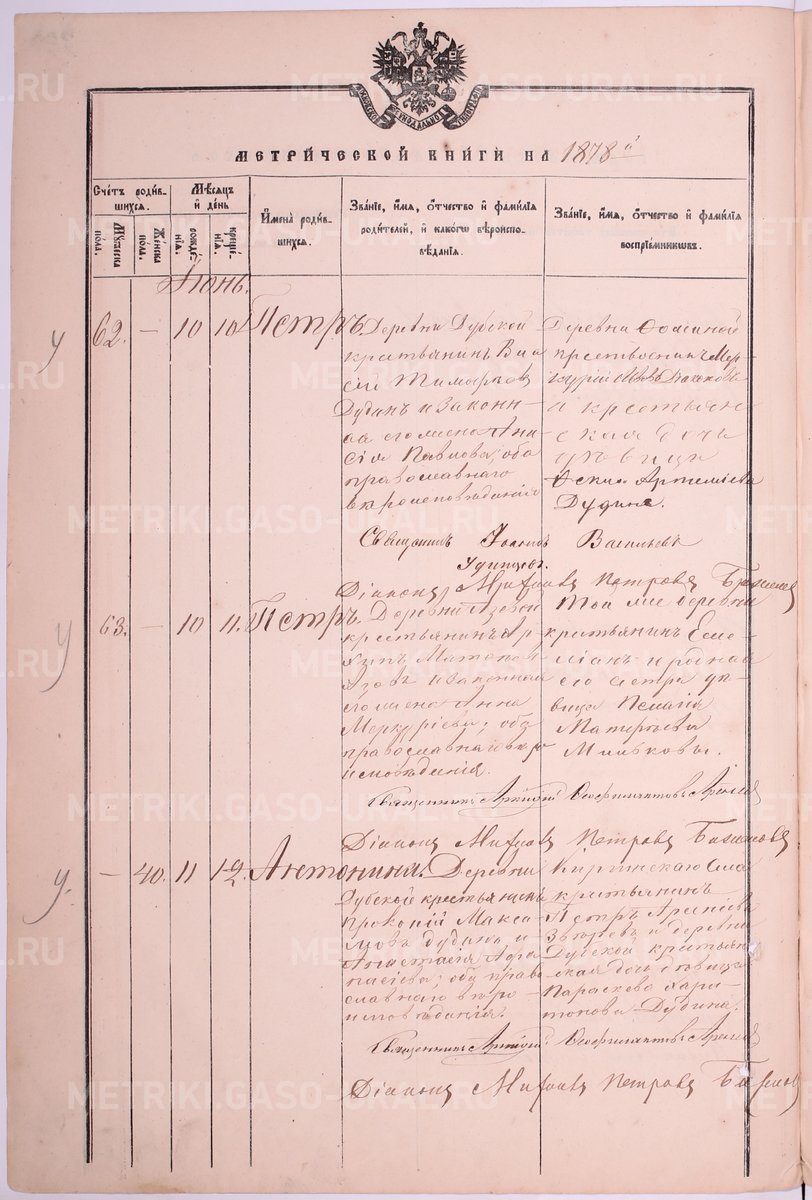 МЕТРИ́ЧЕСКОЙ КНИ́ГИ НА 1878й
Счетъ родив-
шихся.
Мужеска
пола.
Женска
пола.
Мѣсяцъ
и день
рожде-
нія.
креще-
нія.
Имена родив-
шихся.
Званіе, имя, отчество и фамилія
родителей, и какого вѣроиспо-
вѣданія.
Званіе, имя, отчество и фамилія
воспріемниковъ.
Іюнь.
62. — 10 10 Петръ.
Деревни Дубской
крестьянинъ Ва-
Дудинъ и законн-
ая его жена Ани-
сія Павлова; оба
православнаго
вѣроисповѣданія
Деревни Ѳоминой
крестьянинъ Мер-
курій
и крестьян-
ская дочь
дѣвица
Артеміева
Дудина.
Священникъ Іоаннъ Васильевъ
Удинцевъ.
Діаконъ Михаилъ Петровъ
63. — 10 11. Петръ.
Деревни
крестьянинъ Ар-
и законная
его жена Анна
Меркуріева; оба
православнаго вѣро
исповѣданія.
Той же деревни
крестьянинъ Еме-
ліанъ и родная
его сестра дѣ-
вица Пелагія
Матѳеевы
Священникъ Аркадій
Діаконъ Михаилъ Петровъ
— 40. 11 12. Антонина.
Деревни
Дубской крестьянинъ
Прокопій Макси-
мовъ Дудинъ и
Анастасія Аѳа-
насіева; оба право
славнаго вѣро-
исповѣданія.
Киргинскаго села
крестьянинъ
Петръ Арсеніевъ
Звѣревъ и деревни
Дубской крестьян-
ская дочь дѣвица
Параскева Хари-
тонова Дудина.
Священникъ Аркадій
Діаконъ Михаилъ Петровъ
METRIKI.GASO-URAL.RU